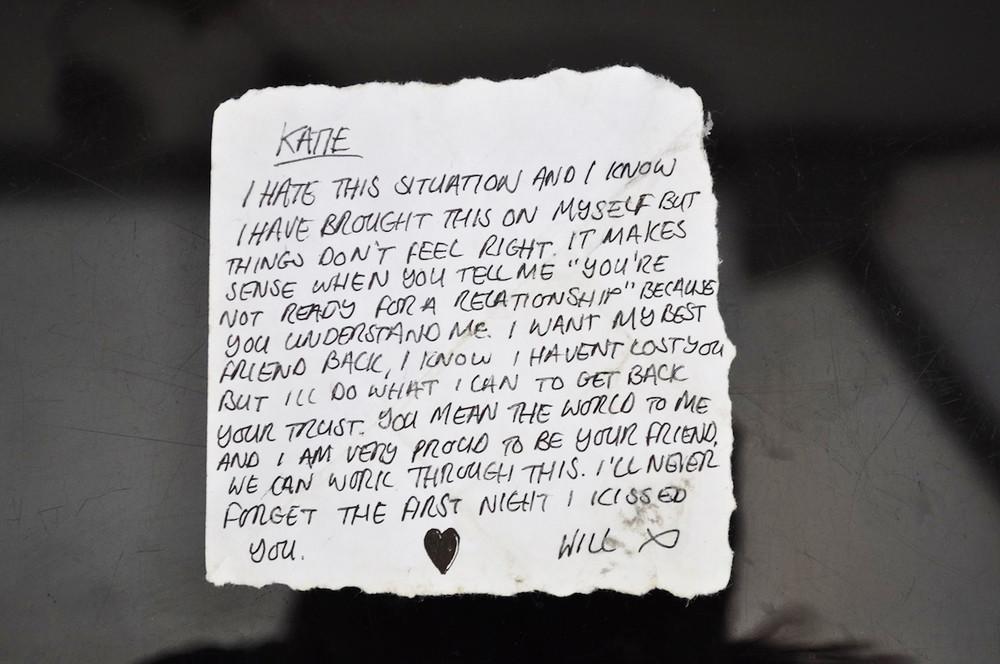 KATIE
I HATE THIS SITUATION AND I KNOW
I HAVE BROUGHT THIS ON MYSELF BUT
THINGS DON'T FEEL RIGHT. IT MAKES
SENSE WHEN YOU TELL ME "YOU'RE
NOT READY FOR A RELATIONSHIP" BECAUSE
YOU UNDERSTAND ME. I WANT MY BEST
FRIEND BACK, I KNOW I HAVENT LOST YOU
BUT ILL DO WHAT I CAN TO GET BACK
YOUR TRUST. YOU MEAN THE WORLD TO ME
AND I AM VERY PROUD TO BE YOUR FRIEND,
WE CAN WORK THROUGH THIS. I'LL NEVER
FORGET THE FIRST NIGHT I KISSED
YOU. ♥ WILL X